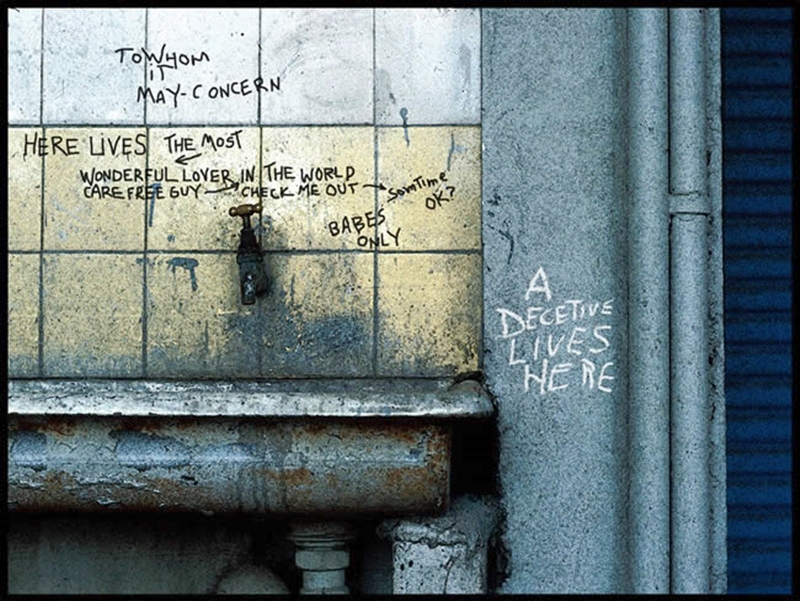 TO WHOM
IT
MAY-CONCERN
HERE LIVES THE MOST
WONDERFUL LOVER IN THE WORLD
CARE FREE GUY → CHECK ME OUT → SOMTIME
OK?
BABES
ONLY
A
DECETIVE
LIVES
HERE